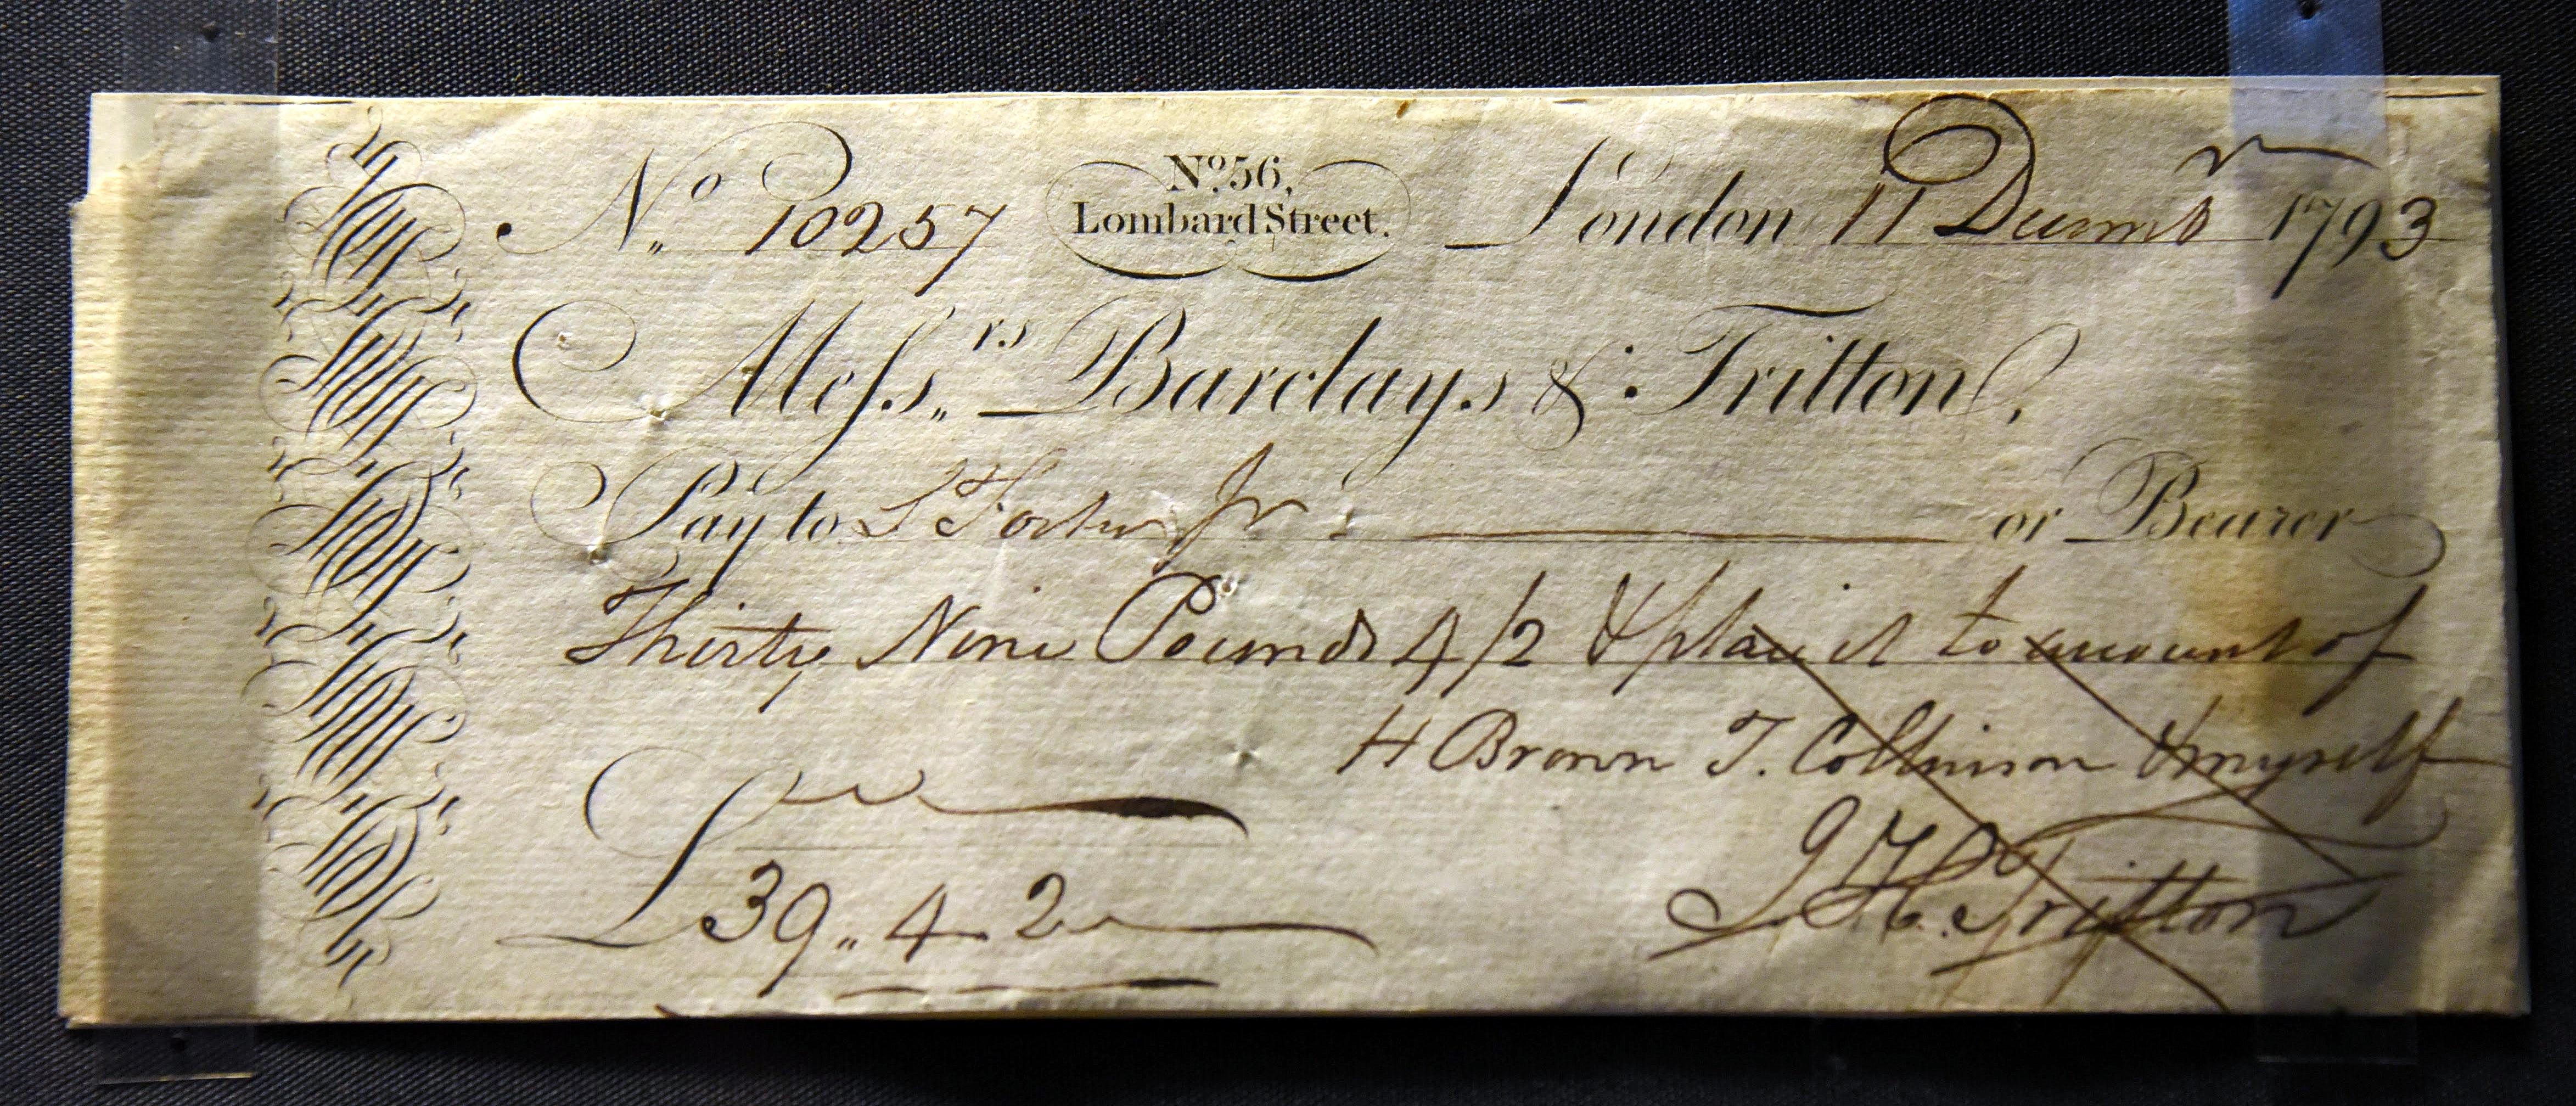 No 10257 No. 56, London 11 Decemr 1793
Lombard Street.
Messrs Barclays & Tritton,
Pay to Jr or Bearer
Thirty Nine Pounds 4/2 & place it to account of
H Brown T. Collinson & myself
£39 „ 4. 2
J H. Tritton